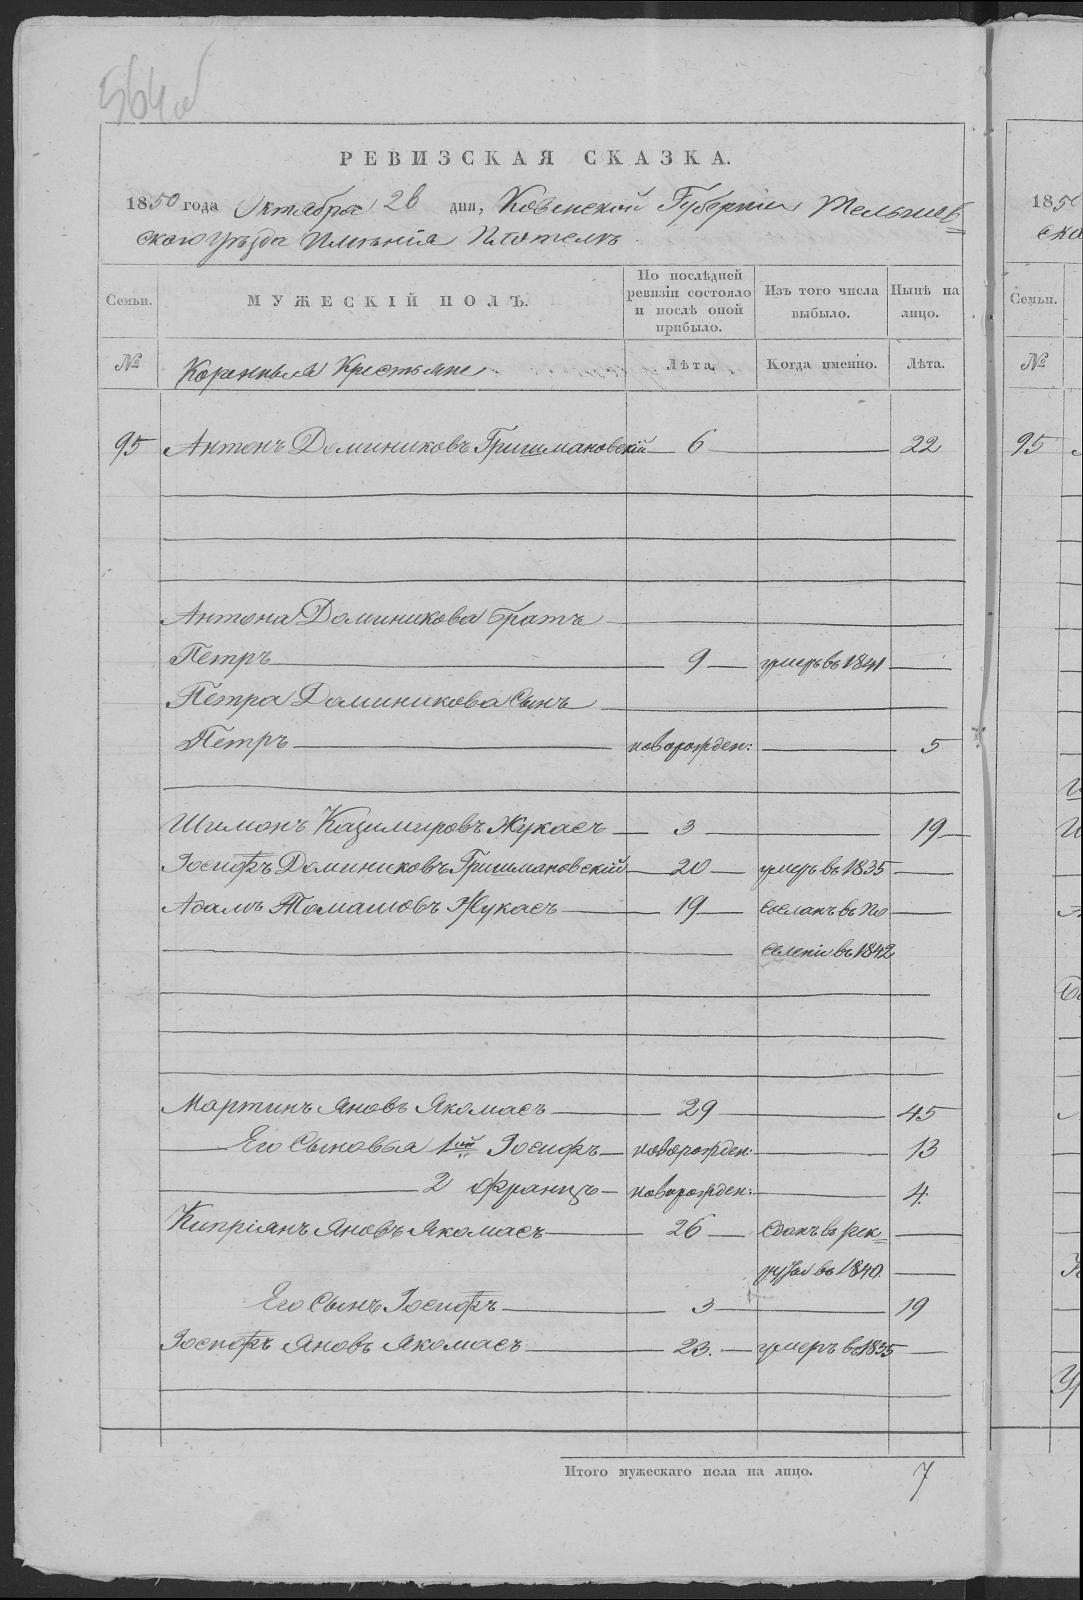 564 об
РЕВИЗСКАЯ СКАЗКА.
1850 года Октября 26 дня, Ковенской Губерніи Тельшев=
скаго уѣзда Имѣнія Плотелъ
Семьи. МУЖЕСКІЙ ПОЛЪ. По послѣдней ревизіи состояло и послѣ оной прибыло. Изъ того числа выбыло. Нынѣ на лицо.
№ Коренныя Крестьяне Лѣта. Когда именно. Лѣта.
95 Антонъ Доминиковъ Гришмановскій 6 22
Антона Доминикова братъ
Петръ 9 умеръ въ 1841
Петра Доминикова сынъ
Петръ новорожден: 5
Шимонъ Казимировъ Жукасъ 3 19
Іосифъ Доминиковъ Гришмановскій 20 умеръ въ 1835
Адамъ Томашовъ Жукасъ 19 Сосланъ въ По
селеніи въ 1842
Мартинъ Яновъ Якомасъ 29 45
Его Сыновья 1ый Іосифъ новорожден: 13
2 Францъ новорожден: 4
Кипріянъ Яновъ Якомасъ 26 Сданъ въ рек=
руты въ 1840.
Его Сынъ Іосифъ 3 19
Іосифъ Яновъ Якомасъ 23. умеръ въ 1835
Итого мужескаго пола на лицо. 7
1850
ска
Семьи.
№
95